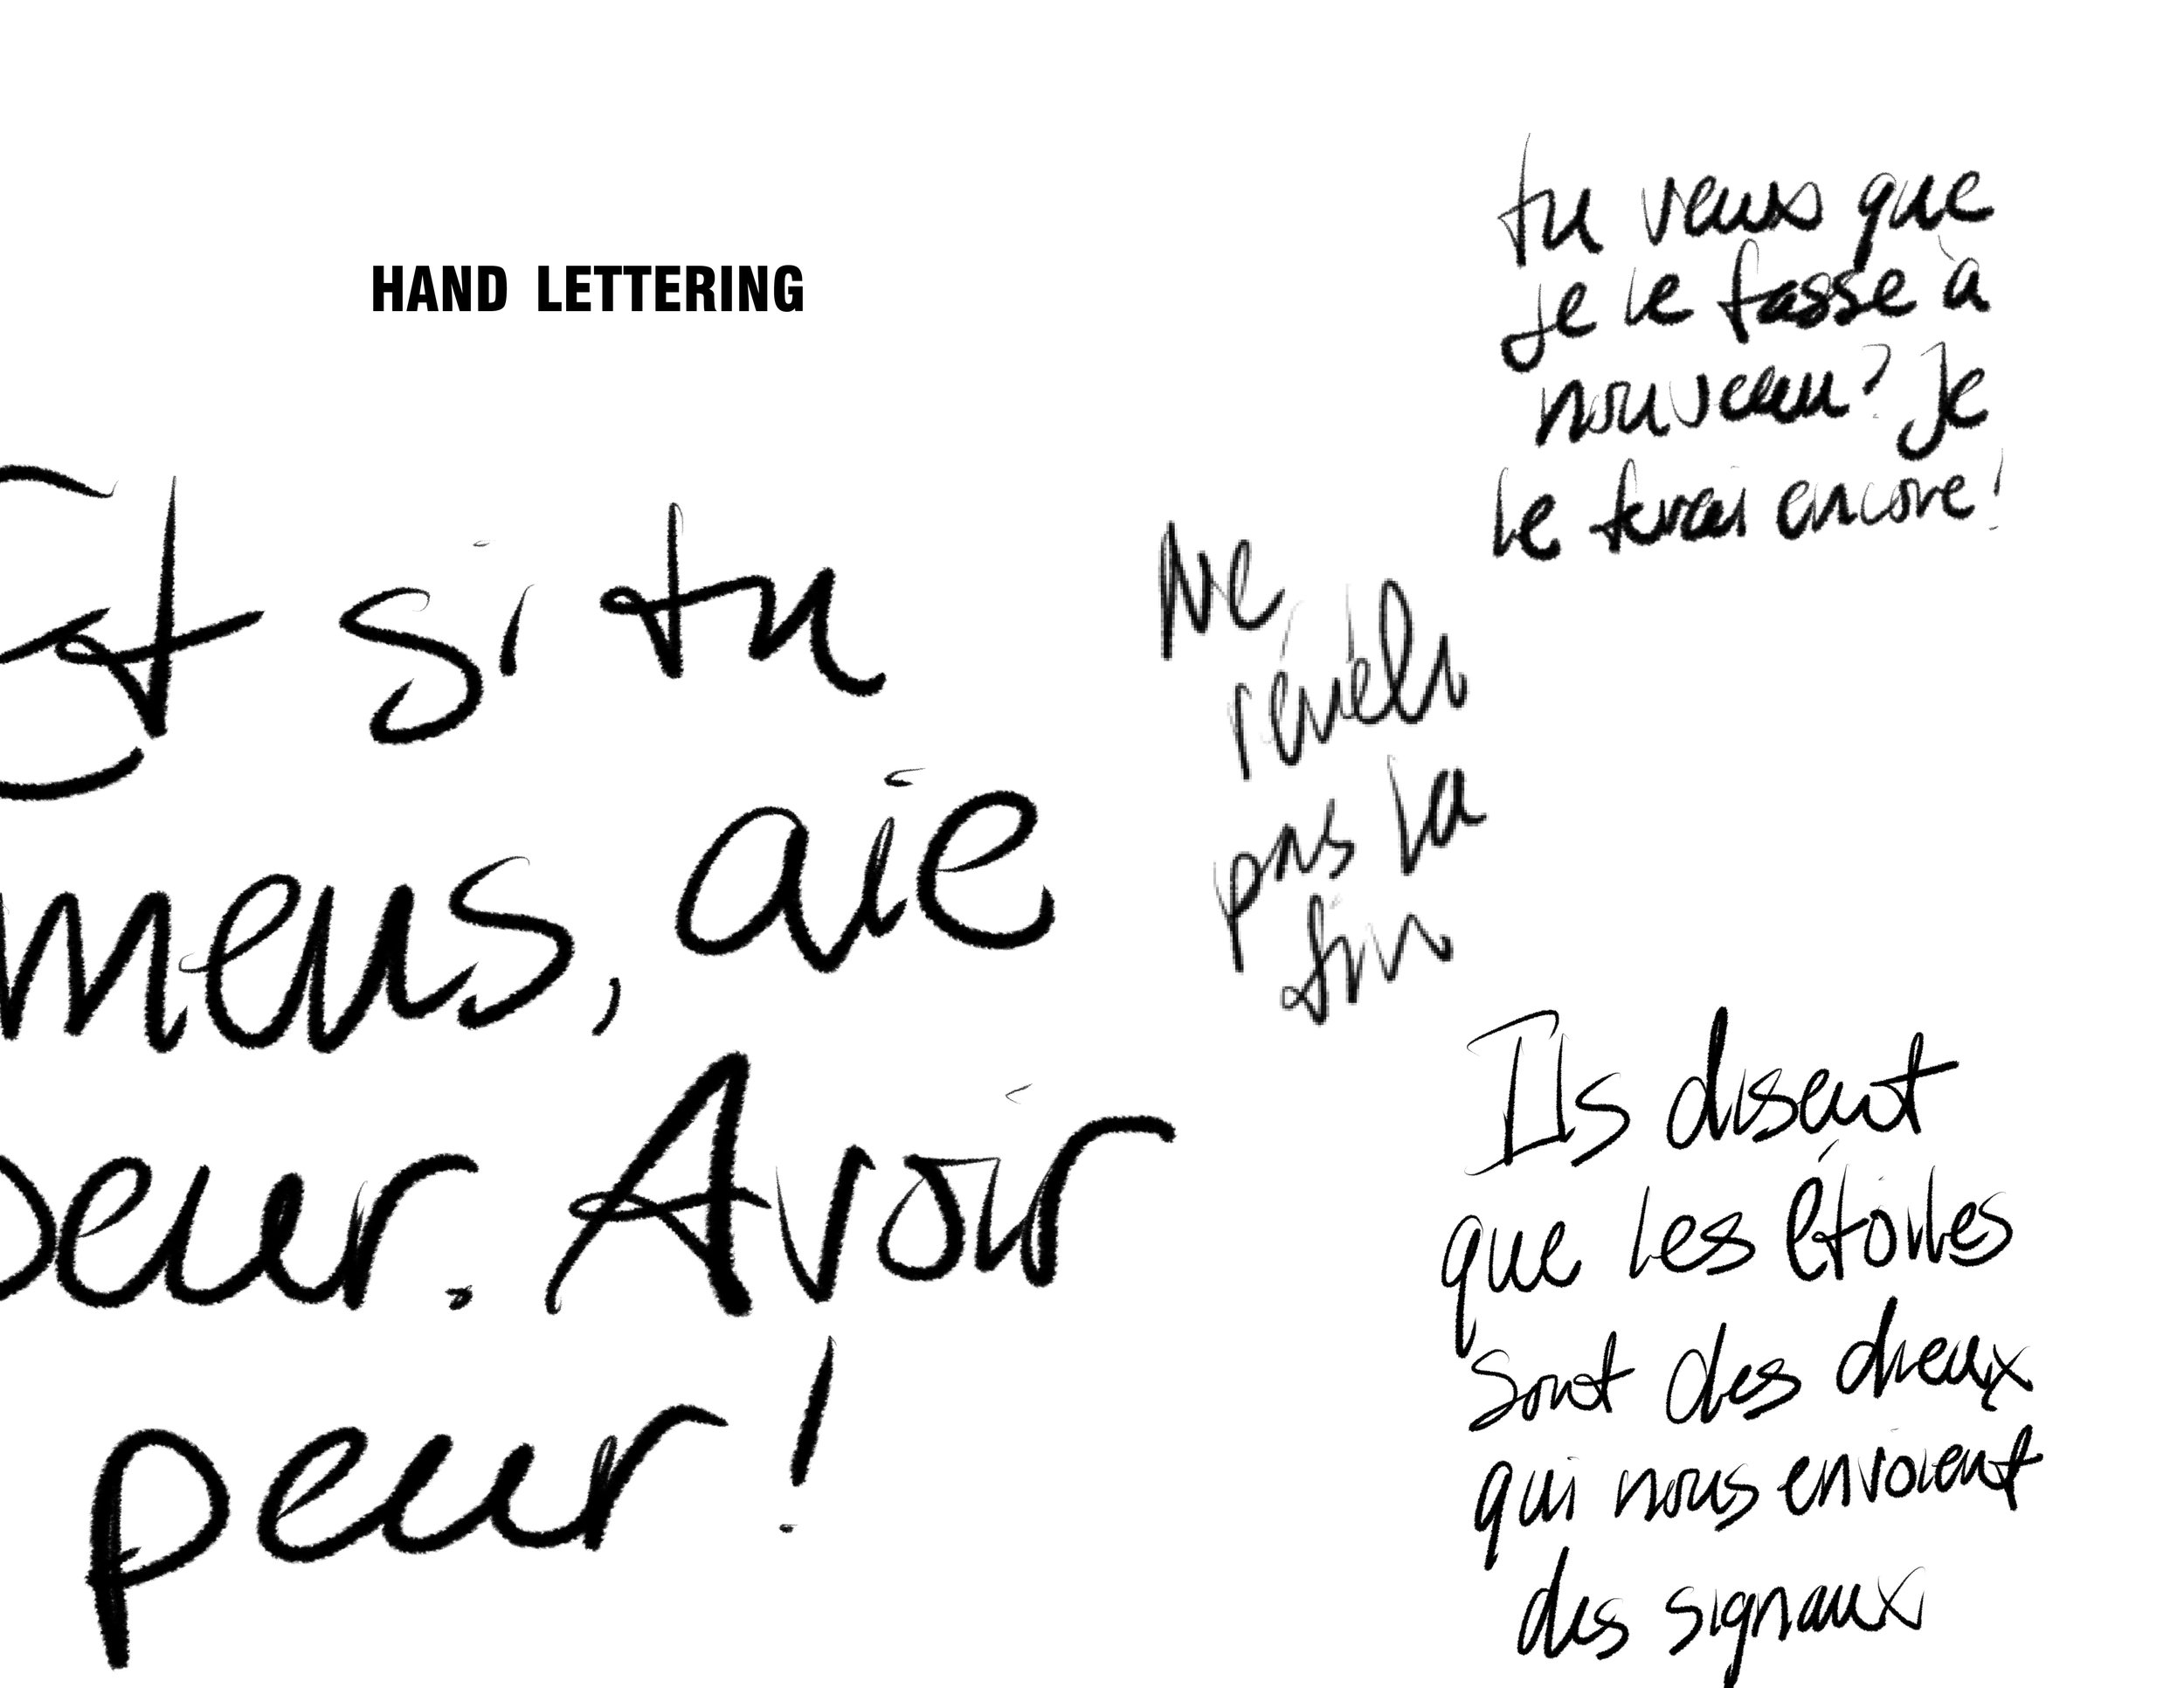 HAND LETTERING
Et si tu
meus, aie
peur. Avoir
peur!
Ne
révèle
pas la
fin
tu veux que
je le fasse à
nouveau? Je
le ferai encore!
Ils disent
que les étoiles
sont des dieux
qui nous envoient
des signaux